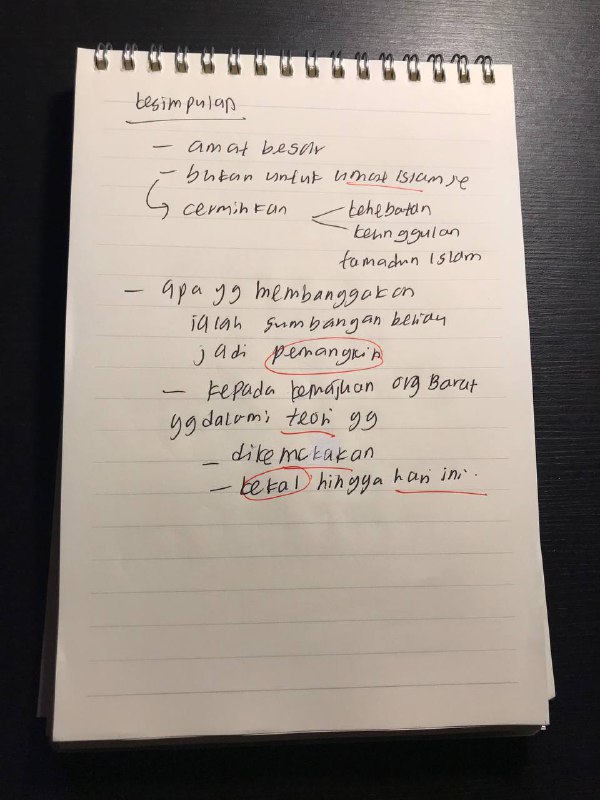 kesimpulan
- amat besar
- bukan untuk umat Islam je
cerminkan kehebatan
keunggulan
tamadun Islam
- apa yg membanggakan
ialah sumbangan beliau
jadi pemangkin
- kepada kemajuan org Barat
yg dalami teori yg
- dikemukakan
- kekal hingga hari ini.